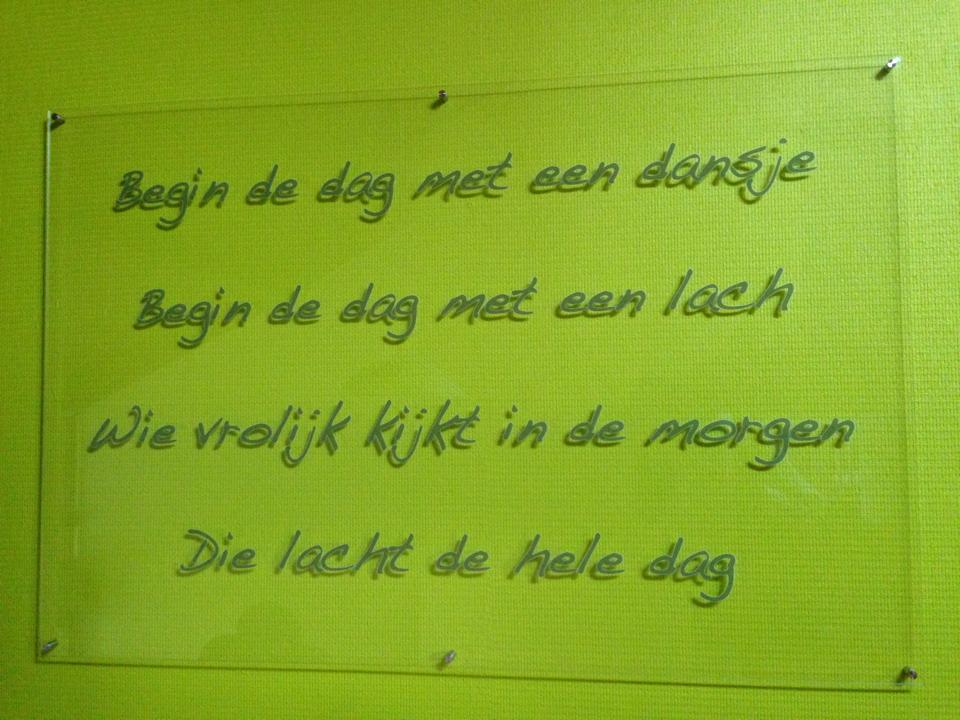 Begin de dag met een dansje
Begin de dag met een lach
Wie vrolijk kijkt in de morgen
Die lacht de hele dag